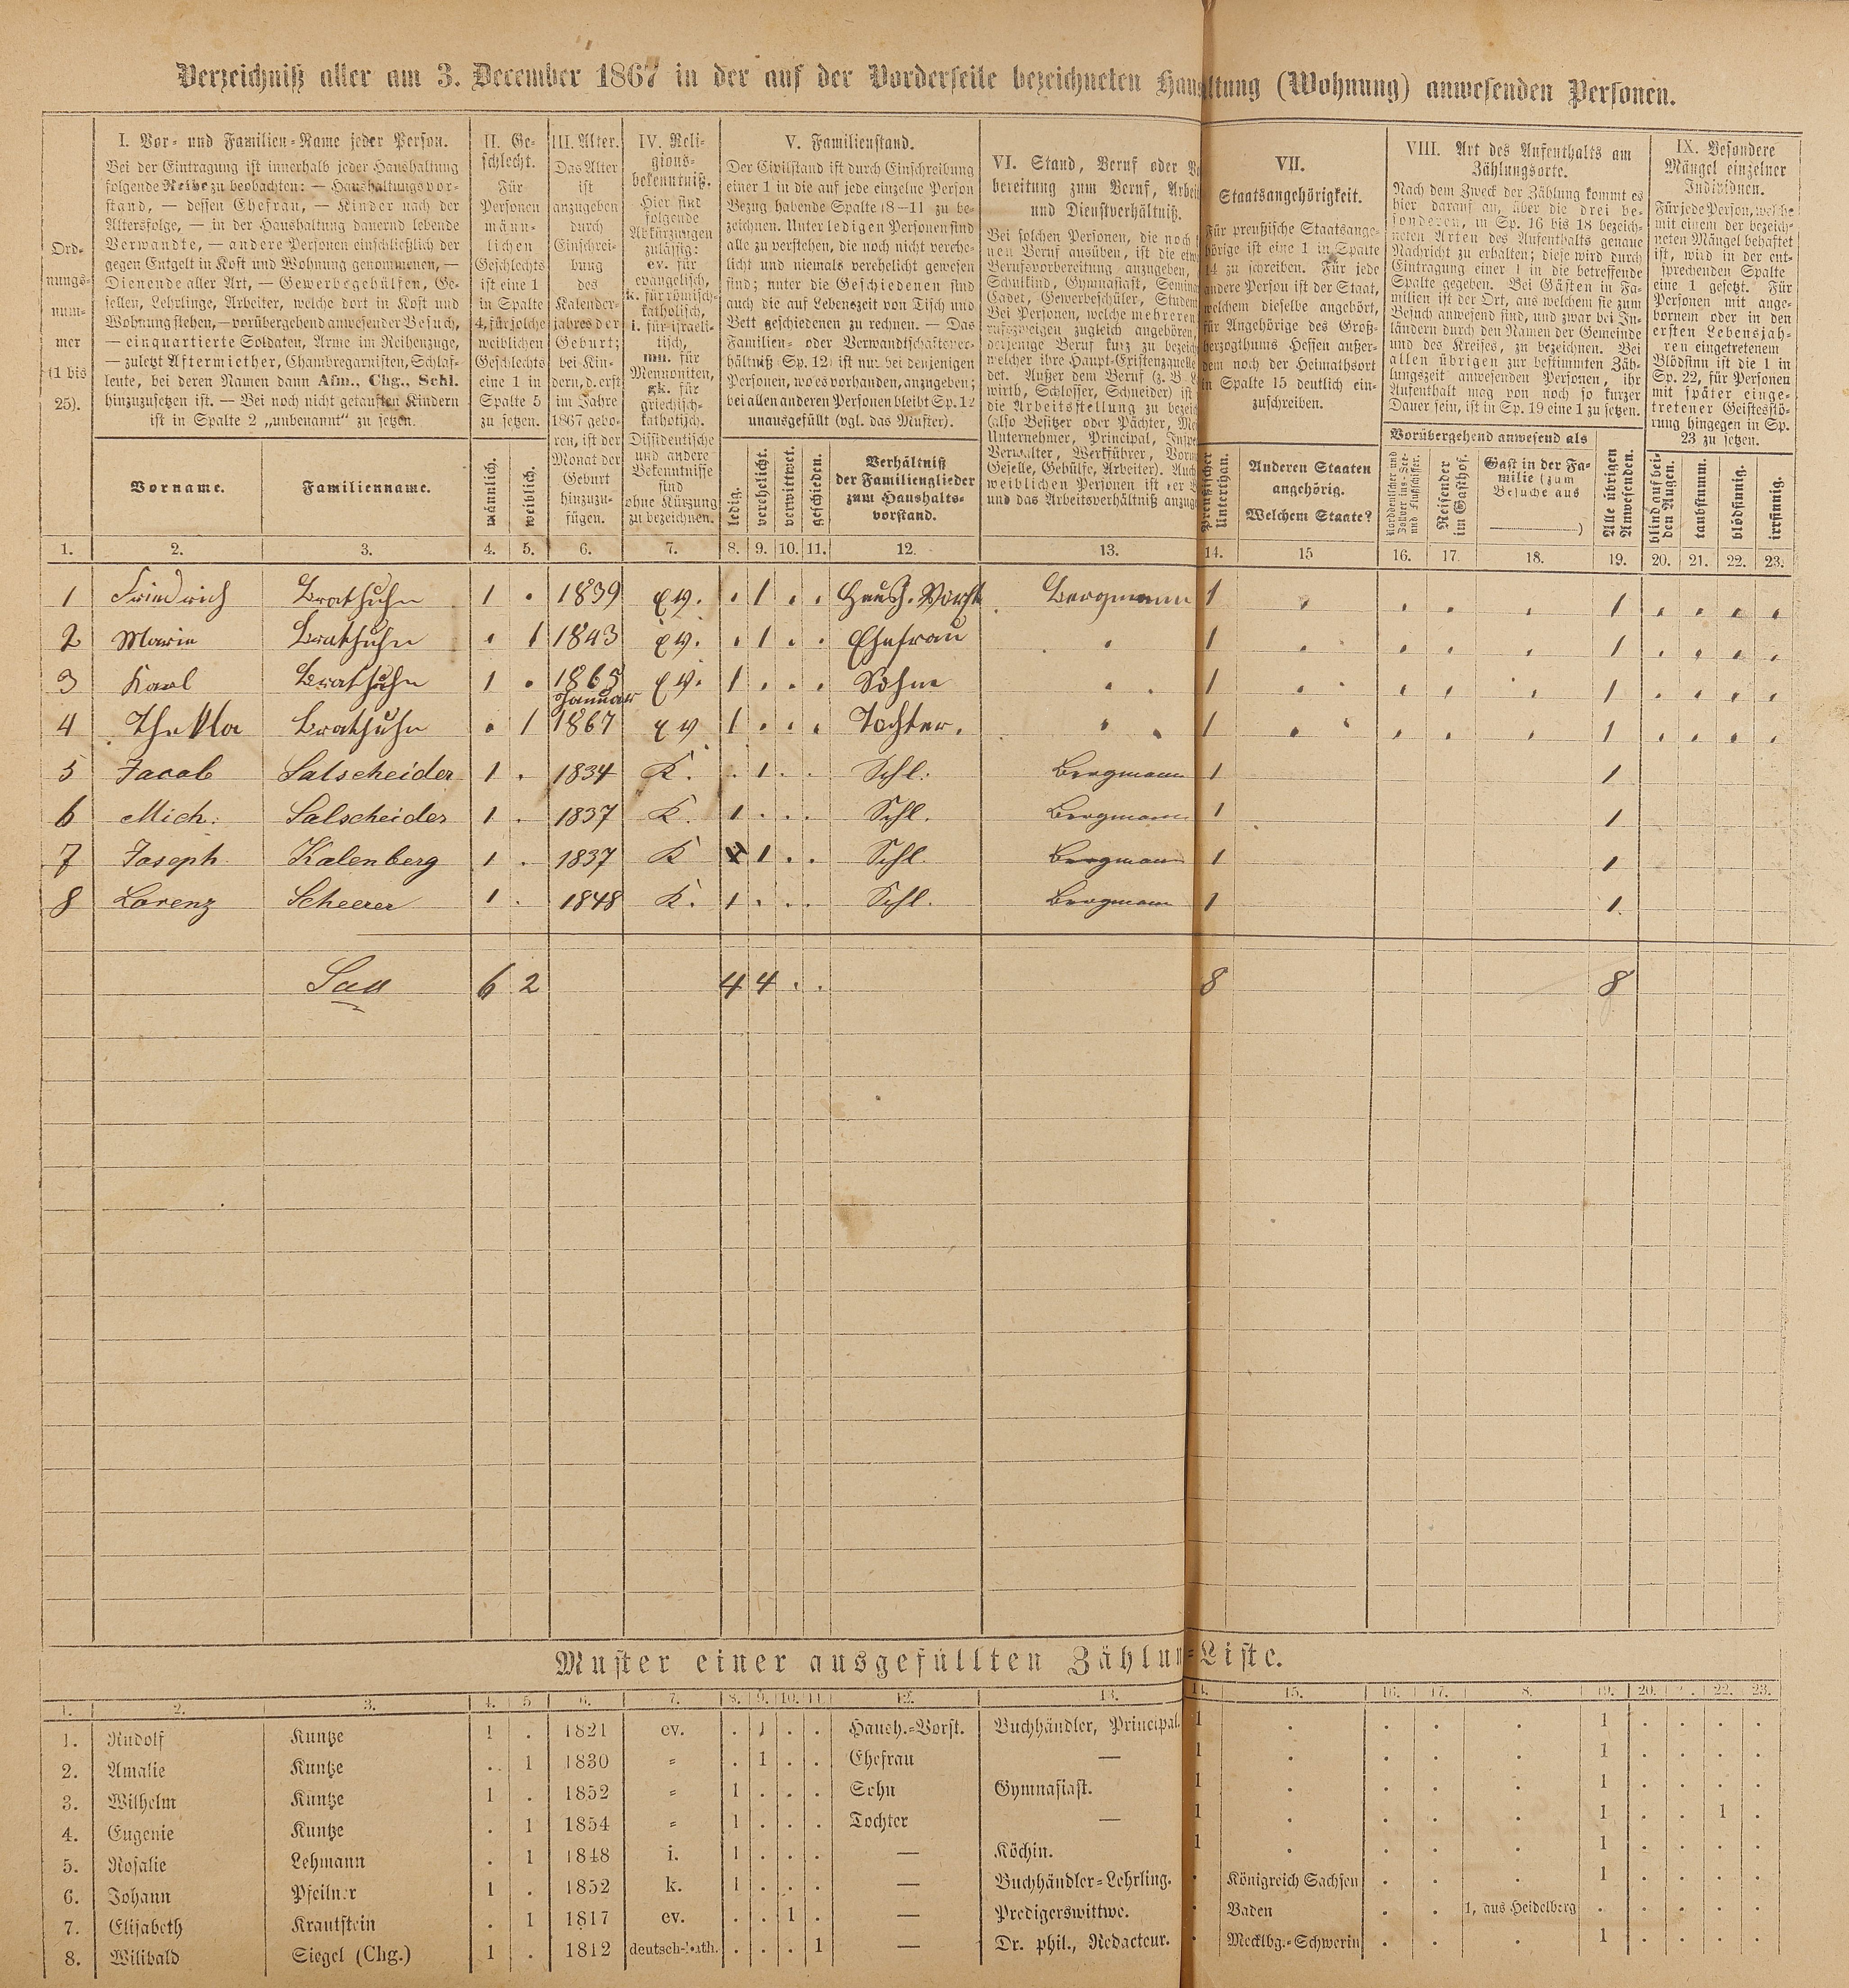 Verzeichniß aller am 3. December 1867 in der auf der Vorderseite bezeichneten Haushaltung (Wohnung) anwesenden Personen.
Ord-
nungs-
num-
mer
(1 bis
25).
I. Vor- und Familien-Name jeder Person.
Bei der Eintragung ist innerhalb jeder Haushaltung
folgende Reihe zu beobachten: — Haushaltungsvor-
stand, — dessen Ehefrau, — Kinder nach der
Altersfolge, — in der Haushaltung dauernd lebende
Verwandte, — andere Personen einschließlich der
gegen Entgelt in Kost und Wohnung genommenen, —
Dienende aller Art, — Gewerbegehülfen, Ge-
sellen, Lehrlinge, Arbeiter, welche dort in Kost und
Wohnung stehen, — vorübergehend anwesender Besuch,
— einquartierte Soldaten, Arme im Reihenzuge,
— zuletzt Aftermiether, Chambregarnisten, Schlaf-
leute, bei deren Namen dann Afm., Chg., Schl.
hinzuzusetzen ist. — Bei noch nicht getauften Kindern
ist in Spalte 2 „unbenannt“ zu setzen.
Vorname.
Familienname.
II. Ge-
schlecht.
Für
Personen
männ-
lichen
Geschlechts
ist eine 1
in Spalte
4, für solche
weiblichen
Geschlechts
eine 1 in
Spalte 5
zu setzen.
männlich.
weiblich.
III. Alter.
Das Alter
ist
anzugeben
durch
Einschrei-
bung
des
Kalender-
jahres der
Geburt;
bei Kin-
dern, d. erst
im Jahre
1867 gebo-
ren, ist der
Monat der
Geburt
hinzuzu-
fügen.
IV. Reli-
gions-
bekenntniß.
Hier sind
folgende
Abkürzungen
zulässig:
ev. für
evangelisch,
k. für römisch-
katholisch,
i. für israeli-
tisch,
mn. für
Mennoniten,
gk. für
griechisch-
katholisch.
Dissidentische
und andere
Bekenntnisse
sind
ohne Kürzung
zu bezeichnen.
V. Familienstand.
Der Civilstand ist durch Einschreibung
einer 1 in die auf jede einzelne Person
Bezug habende Spalte (8—11) zu be-
zeichnen. Unter ledigen Personen sind
alle zu verstehen, die noch nicht verehe-
licht und niemals verehelicht gewesen
sind; unter die Geschiedenen sind
auch die auf Lebenszeit von Tisch und
Bett geschiedenen zu rechnen. — Das
Familien- oder Verwandtschaftsver-
hältniß (Sp. 12) ist nur bei denjenigen
Personen, wo es vorhanden, anzugeben;
bei allen anderen Personen bleibt Sp. 12
unausgefüllt (vgl. das Muster).
ledig.
verehelicht.
verwittwet.
geschieden.
Verhältniß
der Familienglieder
zum Haushalts-
vorstand.
VI. Stand, Beruf oder
bereitung zum Beruf,
und Dienstverhältniß.
Bei solchen Personen, die noch
nen Beruf ausüben, ist die
Berufsvorbereitung anzugeben,
Schulkind, Gymnasiast,
Cadet, Gewerbeschüler,
Bei Personen, welche mehreren
rufszweigen zugleich angehören,
derjenige Beruf kurz zu
welcher ihre Haupt-Existenzquelle
det. Außer dem Beruf (z. B.
wirth, Schlosser, Schneider) ist
die Arbeitsstellung zu
(also Besitzer oder Pächter,
Unternehmer, Principal,
Verwalter, Werkführer,
Geselle, Gehülfe, Arbeiter). Auch
weiblichen Personen ist der
und das Arbeitsverhältniß
VII.
Staatsangehörigkeit.
Für preußische Staatsange-
hörige ist eine 1 in Spalte
14 zu schreiben. Für jede
andere Person ist der Staat,
welchem dieselbe angehört,
für Angehörige des Groß-
herzogthums Hessen außer-
dem noch der Heimathsort
in Spalte 15 deutlich ein-
zuschreiben.
Preußischer
Unterthan.
Anderen Staaten
angehörig.
Welchem Staate?
VIII. Art des Aufenthalts am
Zählungsorte.
Nach dem Zweck der Zählung kommt es
hier darauf an, über die drei be-
sonderen, in Sp. 16 bis 18 bezeich-
neten Arten des Aufenthalts genaue
Nachricht zu erhalten; diese wird durch
Eintragung einer 1 in die betreffende
Spalte gegeben. Bei Gästen in Fa-
milien ist der Ort, aus welchem sie zum
Besuch anwesend sind, und zwar bei In-
ländern durch den Namen der Gemeinde
und des Kreises, zu bezeichnen. Bei
allen übrigen zur bestimmten Zäh-
lungszeit anwesenden Personen, ihr
Aufenthalt mag von noch so kurzer
Dauer sein, ist in Sp. 19 eine 1 zu setzen.
Vorübergehend anwesend als
Norddeutscher und
Zollver ins-See-
und Flußschiffer.
Reisender
im Gasthof.
Gast in der Fa-
milie (zum
Besuche aus
)
Alle übrigen
Anwesenden.
IX. Besondere
Mängel einzelner
Individuen.
Für jede Person, welche
mit einem der bezeich-
neten Mängel behaftet
ist, wird in der ent-
sprechenden Spalte
eine 1 gesetzt. Für
Personen mit ange-
bornem oder in den
ersten Lebensjah-
ren eingetretenem
Blödsinn ist die 1 in
Sp. 22, für Personen
mit später einge-
tretener Geistesstö-
rung hingegen in Sp.
23 zu setzen.
blind auf bei-
den Augen.
taubstumm.
blödsinnig.
irrsinnig.
1. 2. 3. 4. 5. 6. 7. 8. 9. 10. 11. 12. 13. 14. 15 16. 17. 18. 19. 20. 21. 22. 23.
1 Friedrich Brathuhn 1 . 1839 ev. . 1 . . Haush. Vorst. Bergmann 1 . . . . 1 . . . .
2 Marie Brathuhn . 1 1843 ev. . 1 . . Ehefrau . 1 . . . . 1 . . . .
3 Karl Brathuhn 1 . 1865 ev. 1 . . . Sohn . . 1 . . . . 1 . . . .
Januar
4 Thekla Brathuhn . 1 1867 ev 1 . . . Tochter. . . 1 . . . . 1 . . . .
5 Jacob Salscheider 1 . 1834 K. . 1 . . Schl. Bergmann 1 1
6 Mich. Salscheider 1 . 1837 K. 1 . . . Schl. Bergmann 1 1
7 Joseph Kalenberg 1 . 1837 K 1 . . Schl. Bergmann 1 1
8 Lorenz Scheerer 1 . 1848 K. 1 . . . Schl. Bergmann 1 1.
6 2 4 4 . . 8 8
Muster einer ausgefüllten Zählungs-Liste.
1. 2. 3. 4. 5 6. 7. 8. 9. 10. 11. 12. 13. 14. 15. 16. 17. 8. 19. 20. 2. 22. 23.
1. Rudolf Kuntze 1 . 1821 ev. . 1 . . Haush.-Vorst. Buchhändler, Principal. 1 . . . . 1 . . . .
2. Amalie Kuntze . 1 1830 = . 1 . . Ehefrau — 1 . . . . 1 . . . .
3. Wilhelm Kuntze 1 . 1852 = 1 . . . Sohn Gymnasiast. 1 . . . . 1 . . . .
4. Eugenie Kuntze . 1 1854 = 1 . . . Tochter — 1 . . . . 1 . . 1 .
5. Rosalie Lehmann . 1 1848 i. 1 . . . — Köchin. 1 . . . . 1 . . . .
6. Johann Pfeilner 1 . 1852 k. 1 . . . — Buchhändler-Lehrling. . Königreich Sachsen . . . 1 . . . .
7. Elisabeth Krautstein . 1 1817 ev. . . 1 . — Predigerswittwe. . Baden . . 1, aus Heidelberg . . . . .
8. Wilibald Siegel (Chg.) 1 . 1812 deutsch-kath. . . . 1 — Dr. phil., Redacteur. . Mecklbg.-Schwerin . . . 1 . . . .